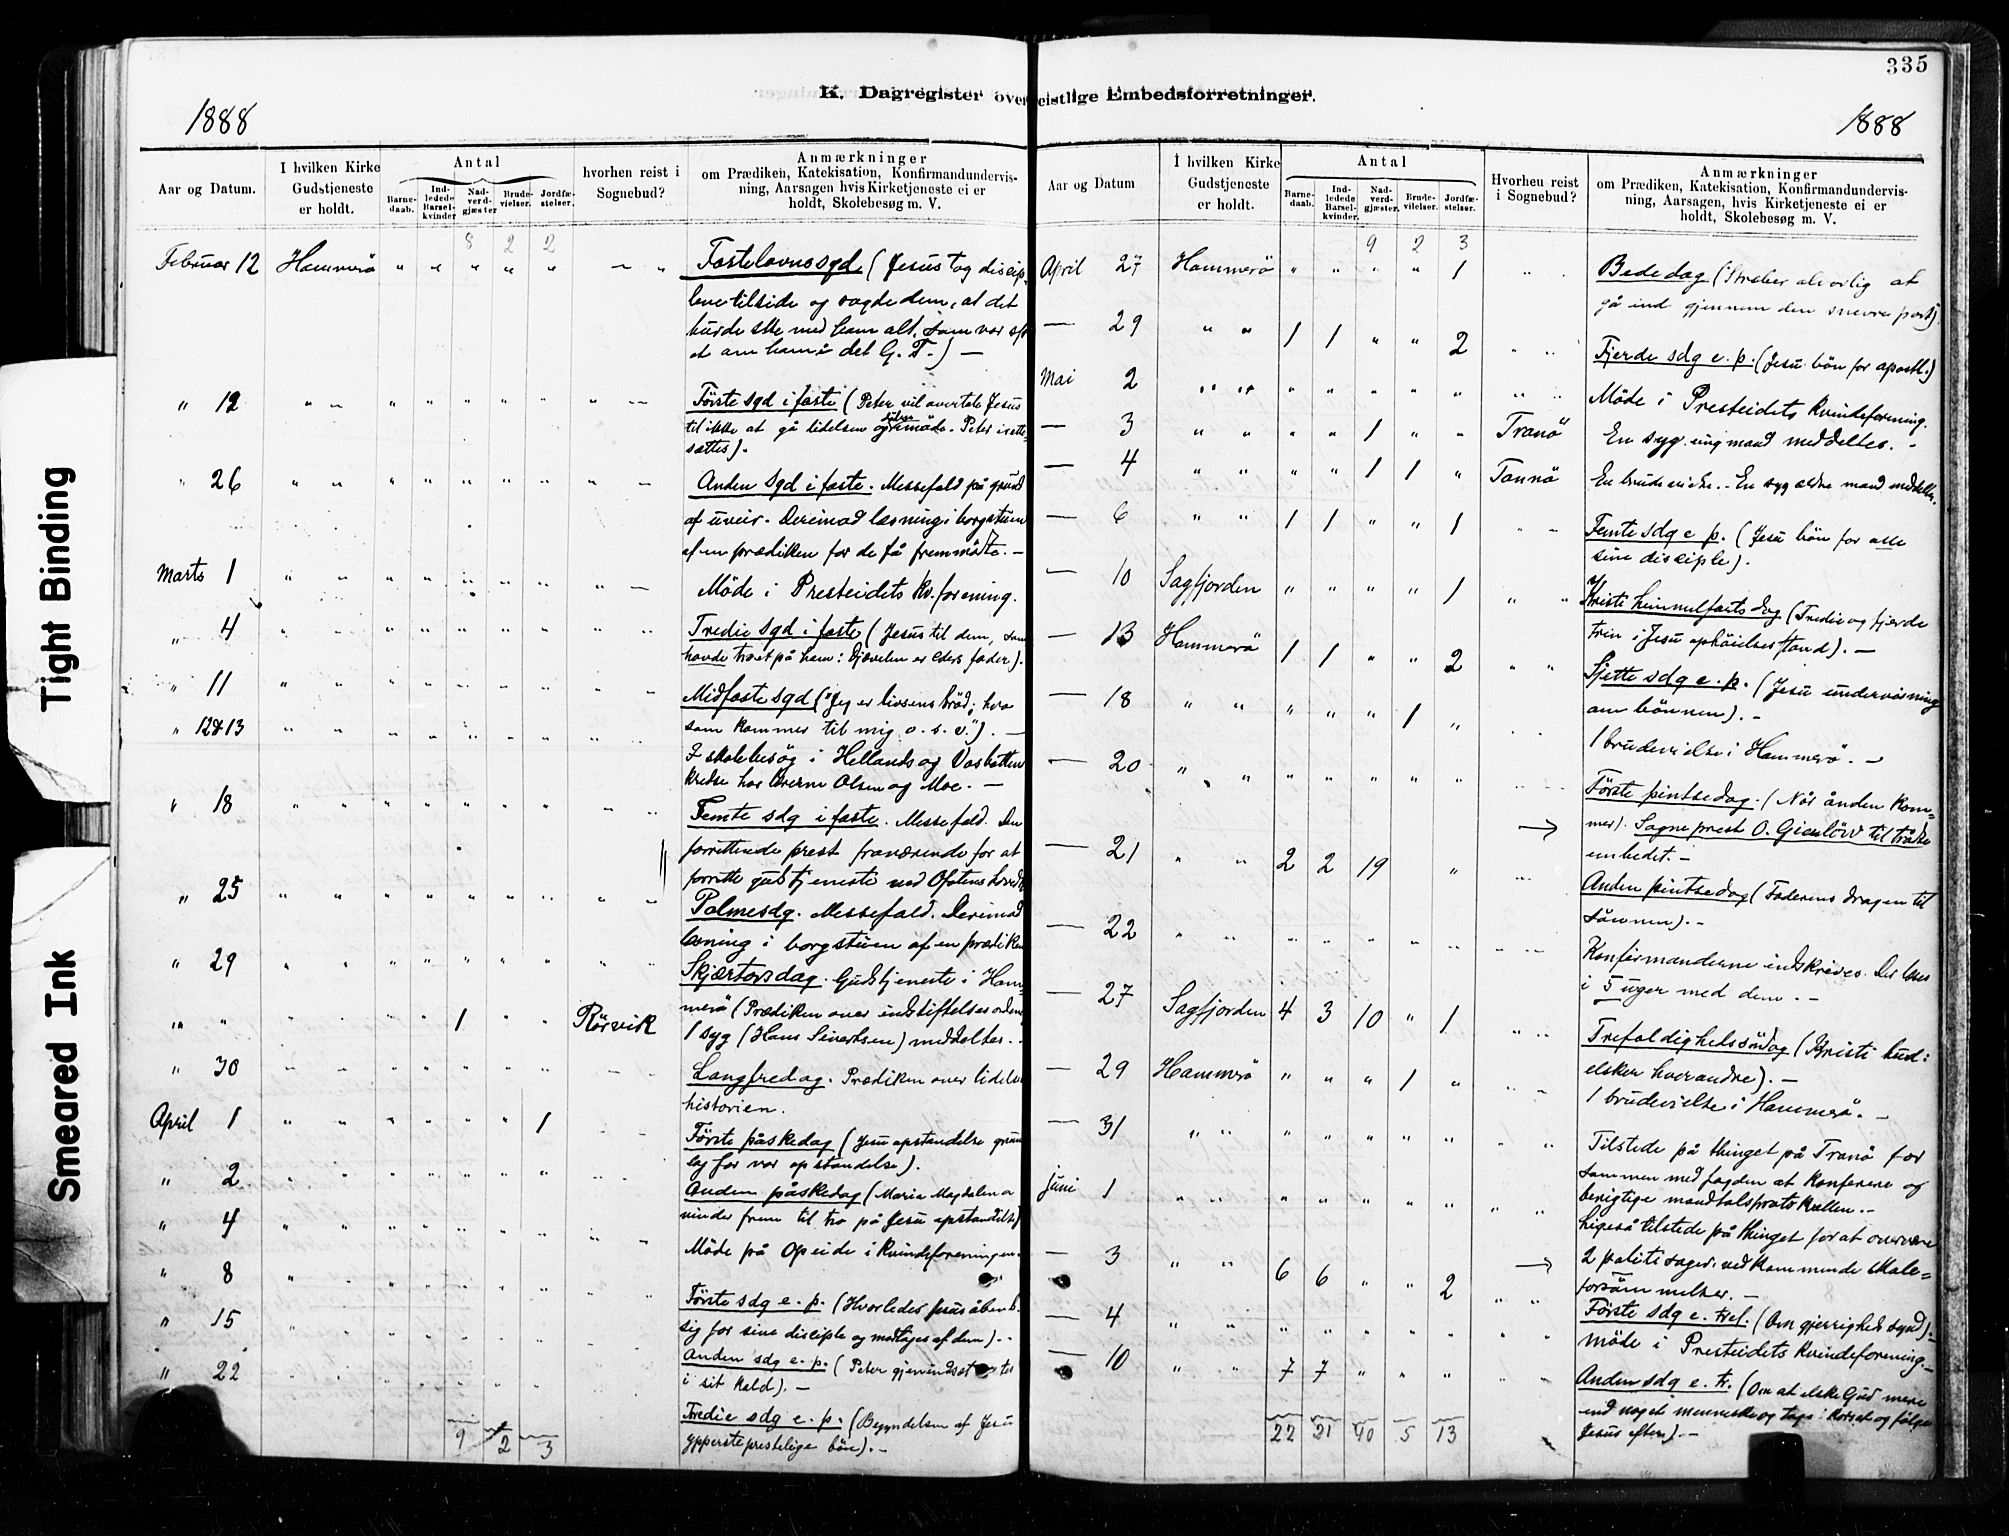 335
K. Dagregister over
eistlige Embedsforretninger.
1888
Aar og Datum.
I hvilken Kirke Gudstjeneste er holdt.
Antal
Barne-daab.
Ind-ledede Barsel-kvinder
Nad-verd-gjæster
Brude-vielser.
Jordfæ-stelser.
hvorhen reist i Sognebud?
Anmærkninger
om Prædiken, Katekisation, Konfirmandundervis-
ning, Aarsagen hvis Kirketjeneste ei er
holdt, Skolebesøg m. V.
8 2 2
Februar 12 Hammerö " " " " " Fastelavnssgd. (Jesus tog discip-
lene tilside og sagde dem, at det
burde ske med ham alt, som var
det G. T.) —
" 19 " " " " " " " Förste sgd i faste (Peter vil overtale Jesus
til ikke at gå lidelsen imöde. Peter irette-
sættes).
" 26 " " " " " " " Anden sgd i faste. Messefald på grund
af uveir. Derimod læsning i borgstuen
af en prædiken for de få fremmödte. —
Marts 1 " " " " " " " Möde i Presteidets kv. forening.
" 4 " " " " " " " Tredie sgd i faste (Jesus til dem, som
havde troet på ham: Djævelen er eders fader).
" 11 " " " " " " " Midfaste sgd ("Jeg er livsens bröd; hvo
som kommer til mig o. s. v.") . —
" 12 & 13 " " " " " " " 2 skolebesög i Hellands og
kredse hos lærerne Olsen og Moe. —
" 18 " " " " " " " Femte sdg i faste. Messefald. Den
forrettende prest fraværende for at
forrette gudstjeneste ved Ofotens
" 25 " " " " " " " Palmesdg. Messefald. Derimod
læsning i borgstuen af en prædiken
" 29 " " " " " " " Skjærtorsdag. Gudstjeneste i Ham-
merö (Prædiken over indstiftelsesordene
" " 1 " " Rörvik 1 syg (Hans Sivertsen) meddeltes. -
" 30 " " " " " " " Langfredag. Prædiken over lidelses
historien.
April 1 " " " " " " 1 Förste påskedag (Jesu opstandelse grun
lag for vor opstandelse).
" 2 " " " " " " " Anden påskedag (Maria Magdalena
vinder frem til tro på Jesu opstandelse)
" 4 " " " " " " " Möde på Opeide i kvindeforeningen.
" 8 " " " " " " " Förste sdg e. p. (Hvorledes Jesus åbenb.
sig for sine disciple og modtages af dem). -
" 15 " " " " " " " Anden sdg e. p. (Peter gjenindsættes
i sit kald). —
" 22 " " " " " " " Tredie sdg e. p. (Begyndelsen af Jesu
ypperste prestelige bön). —
9 2 3
1888
Aar og Datum
I hvilken Kirke Gudstjeneste er holdt.
Antal
Barne-daab.
Ind-ledede Barsel-kvinder.
Nad-verd-gjæster.
Brude-vielser.
Jordfæ-stelser.
Hvorhen reist i Sognebud?
Anmærkninger
om Prædiken, Katekisation, Konfirmandundervis-
ning, Aarsagen, hvis Kirketjeneste ei er
holdt, Skolebesøg m. V.
9 2 3
April 27 Hammerö " " " " 1 Bededag (Stræber alvorlig at
gå ind gjennem den snevre port).
— 29 " " 1 1 " " 2 Fjerde sdg e. p. (Jesu bön for apostl.)
Mai 2 " " " " " " " Möde i Presteidets kvindeforening.
— 3 " " " " 1 " " Tranö En syg ung mand meddeltes. -
— 4 " " " " 1 1 " Tannö En brudevielse. - En syg ældre mand meddeltes.
— 6 " " 1 1 " " 1 Femte sdg e. p. (Jesu bön for alle
sine disciple).
— 10 Sagfjorden " " " " 1 Kristi himmelfarts dag (Tredie og fjerde
trin i Jesu ophöielsesstand). —
— 13 Hammerö 1 1 " " 2 Sjette sdg e. p. (Jesu undervisning
om bönnen). -
— 18 " " " " " 1 " 1 brudevielse i Hammerö. —
— 20 " " " " " " " Förste pintsedag. (Når ånden kom-
mer). Sogneprest O. Gjerlöw tiltrådte
embedet. -
— 21 " " 2 2 19 " Anden pintsedag (Faderens dragen til
sönnen). -
— 22 " " " " " " " Konfirmanderne indskrives. Der læses
i 5 uger med dem. -
— 27 Sagfjorden 4 3 10 " 1 Trefoldighedssöndag (Kristi bud:
elsker hverandre). -
— 29 Hammerö " " " 1 " 1 brudevielse i Hammerö. —
— 31 " " " " " " " Tilstede på thinget på Tranö for
sammen med fogden at konferere og
berigtige mandtalsprotokollen. -
Juni 1 " " " " " " " Ligeså tilstede på thinget for at overvære
2 politisager vedkommende skole-
forsömmelser. —
— 3 " " 6 6 " " 2 Förste sdg e. tref. (Om gjerrigheds synd).
— 4 " " " " " " " möde i Presteidets kvindeforening. -
— 10 " " 7 7 " " " Anden sdg e. tr. (Om at elske Gud mere
end noget menneske og tage i korset og fölge
Jesus efter). -
22 21 40 5 13
Tight Binding
Smeared Ink